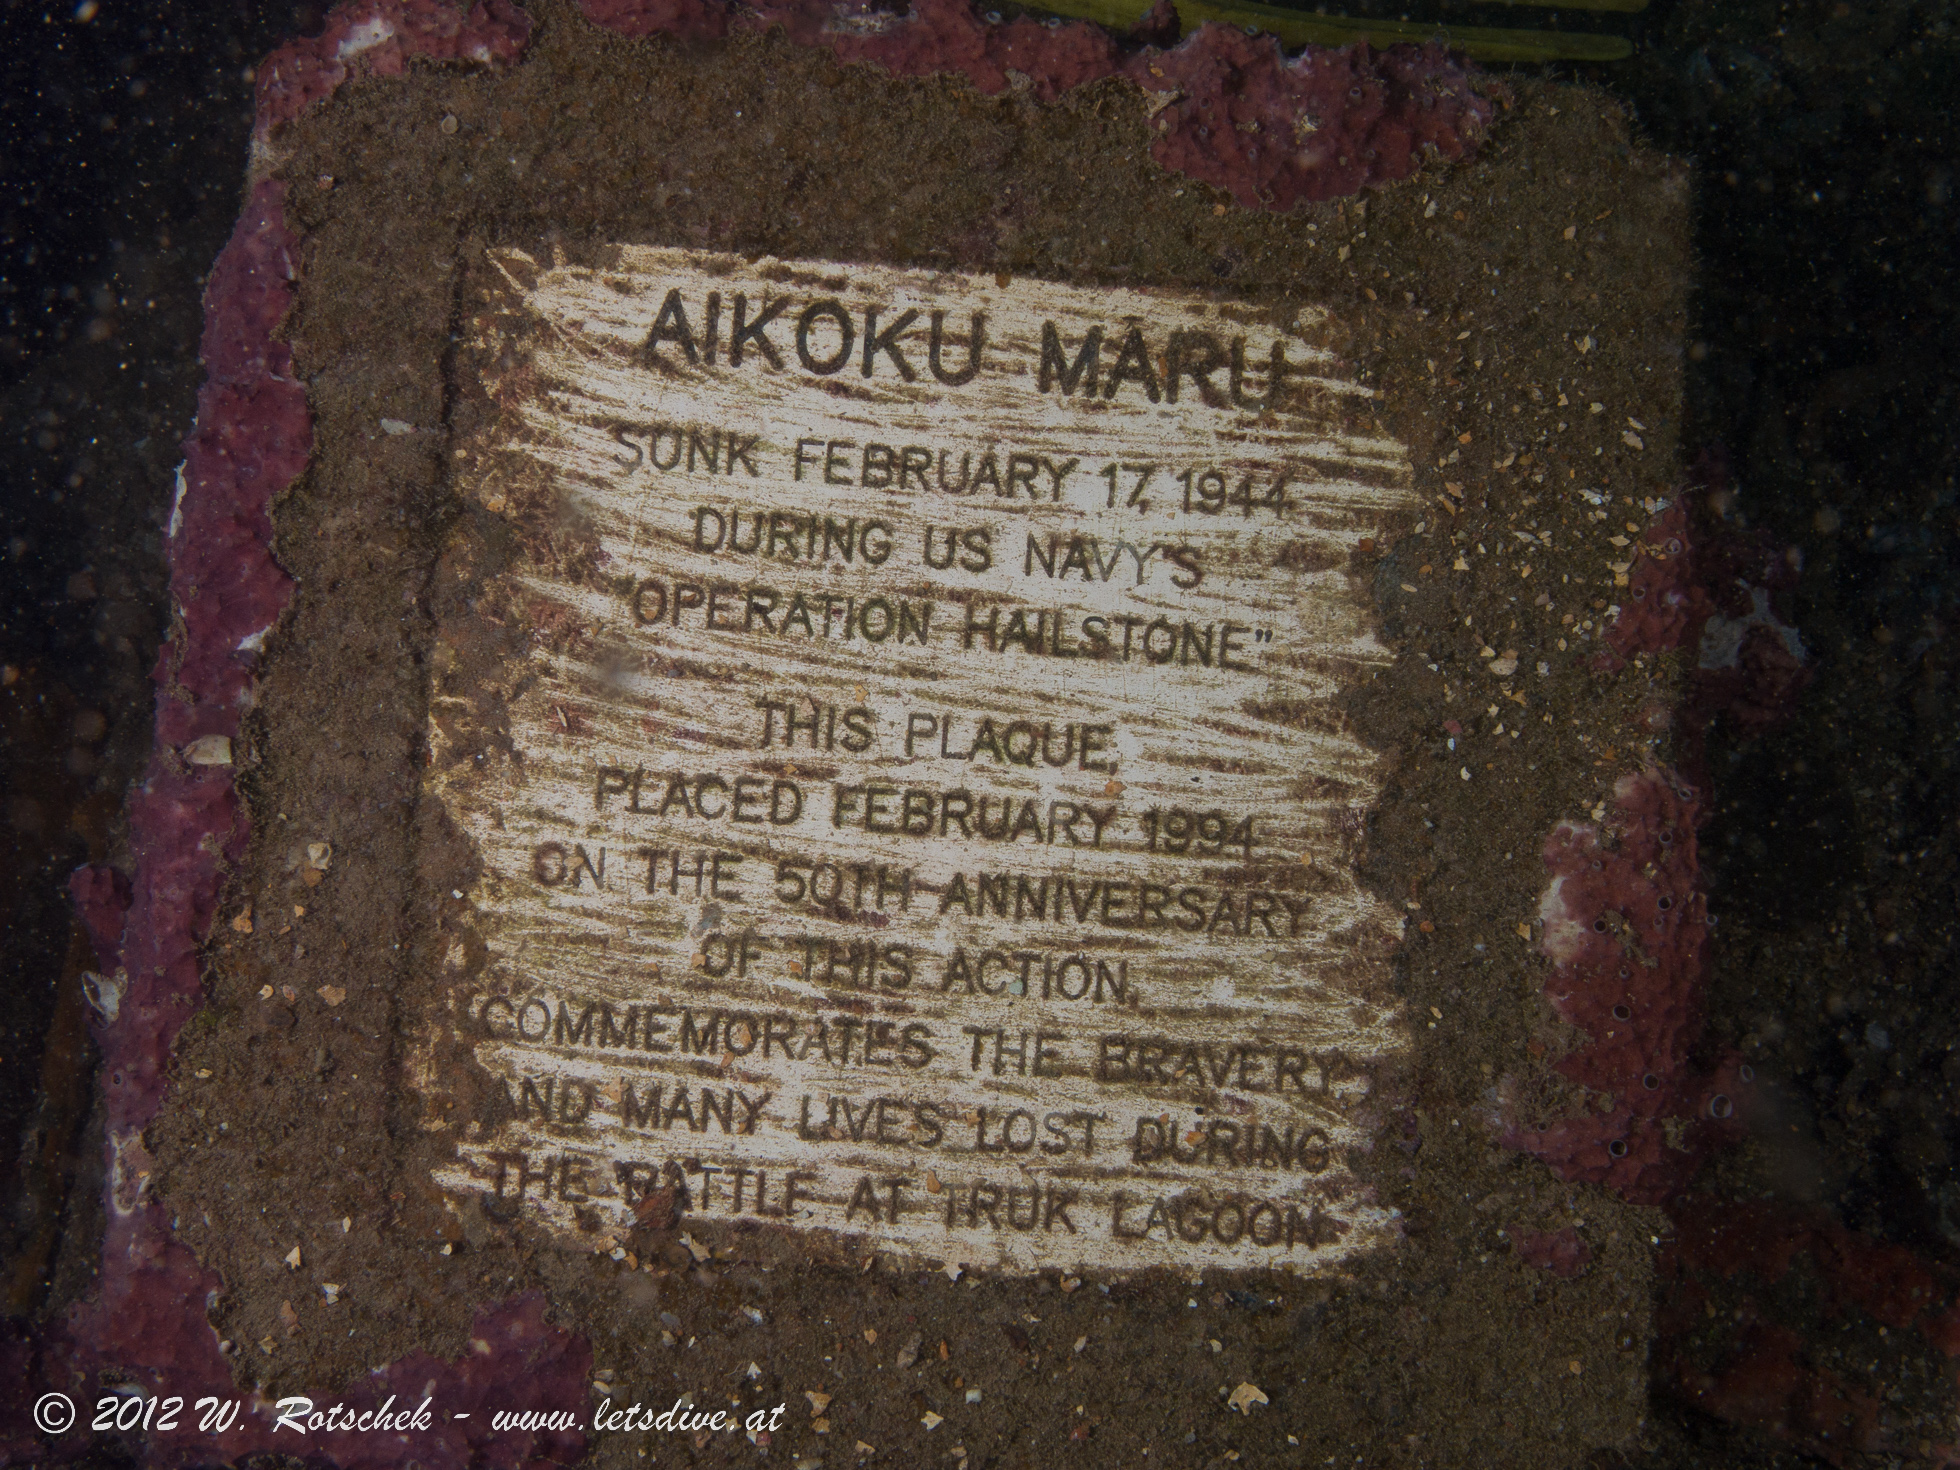 AIKOKU MARU
SUNK FEBRUARY 17, 1944
DURING US NAVY'S
"OPERATION HAILSTONE"
THIS PLAQUE,
PLACED FEBRUARY 1994
ON THE 50TH ANNIVERSARY
OF THIS ACTION,
COMMEMORATES THE BRAVERY
AND MANY LIVES LOST DURING
THE BATTLE AT TRUK LAGOON
© 2012 W. Rotschek - www.letsdive.at